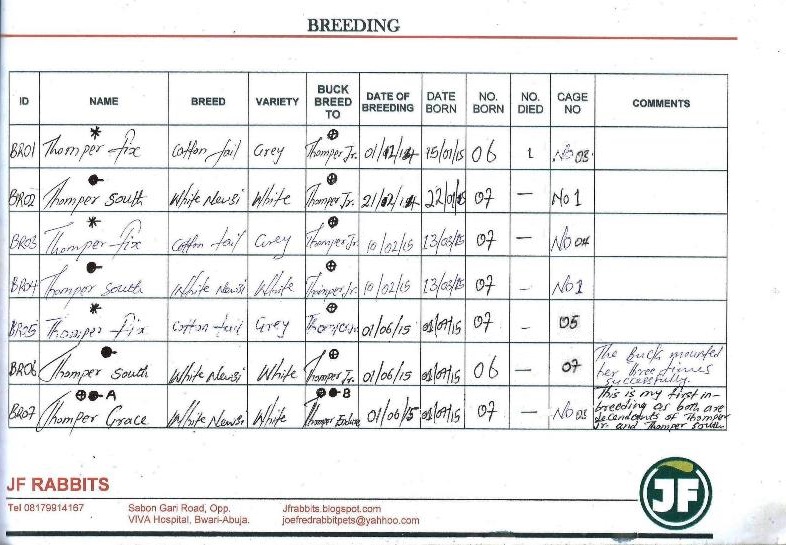 BREEDING
ID NAME BREED VARIETY BUCK BREED TO DATE OF BREEDING DATE BORN NO. BORN NO. DIED CAGE NO COMMENTS
BR01 Thomper fix Cotton tail Grey Thomper Jr. 01/12/14 15/01/15 06 1 No 03
BR02 Thomper South White Newsi White Thomper Jr. 21/12/14 22/01/15 07 — No 1
BR03 Thomper fix Cotton tail Grey Thomper Jr. 10/02/15 13/03/15 07 — No 04
BR04 Thomper South White Newsi White Thomper Jr. 10/02/15 13/03/15 07 - No 1
BR05 Thomper fix Cotton tail Grey 01/06/15 01/07/15 07 - 05
BR06 Thomper South White Newsi White Thomper Jr. 01/06/15 01/07/15 06 — 07 The buck mounted her three times successfully.
A B
BR07 Thomper Grace White Newsi White Thomper 01/06/15 01/07/15 07 — No This is my first in-breeding as both are decendants of Thomper Jr. and Thomper South
JF RABBITS
Tel 08179914167 Sabon Gari Road, Opp. Jfrabbits.blogspot.com
VIVA Hospital, Bwari-Abuja. joefredrabbitpets@yahoo.com
JF